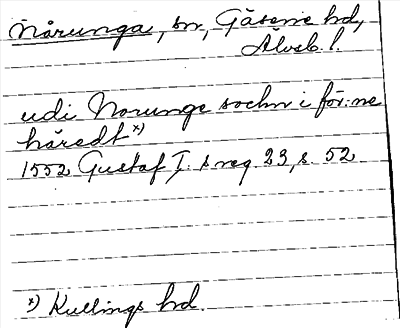 Nårunga, sn, Gäsene hd,
Älvsb. l.
udi Norunge sochn i för:ne
häredt x)
1552 Gustaf I:s reg. 23, s. 52
x) Kullings hd.